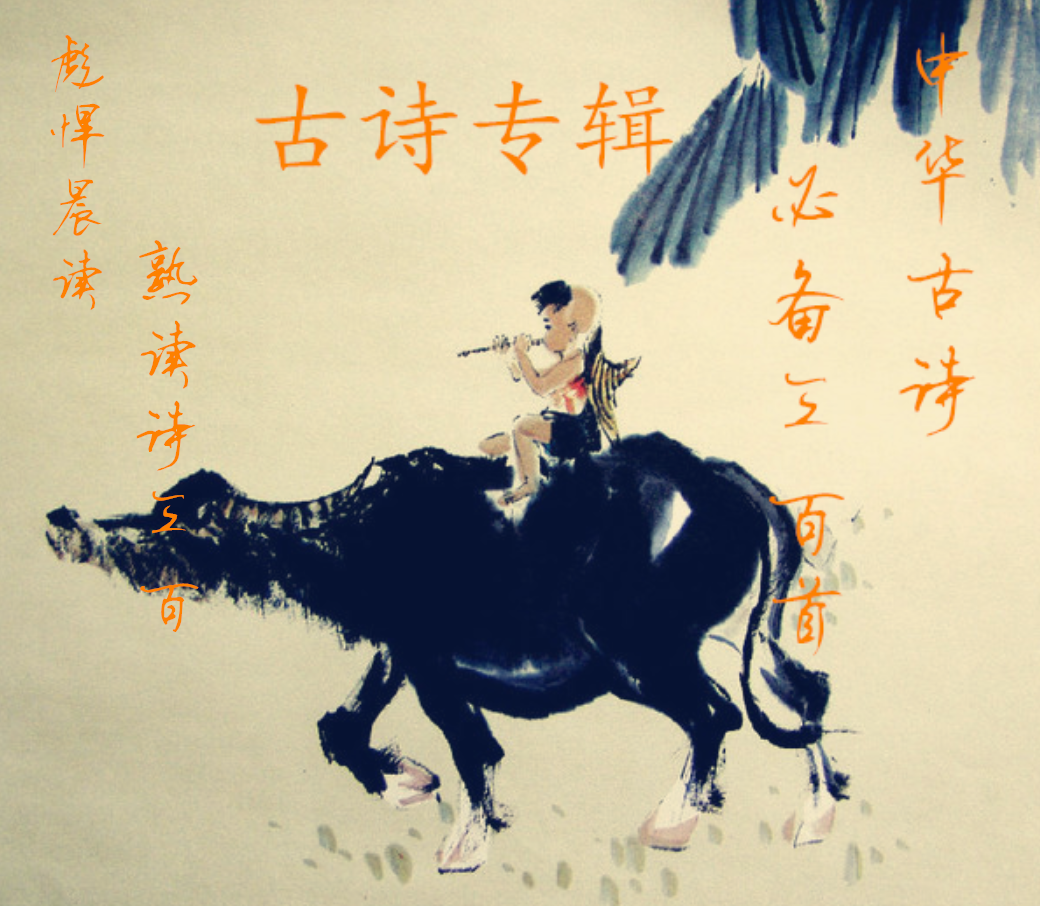 古诗专辑
中华古诗
必备三百首
彪悍晨读
熟读诗三百